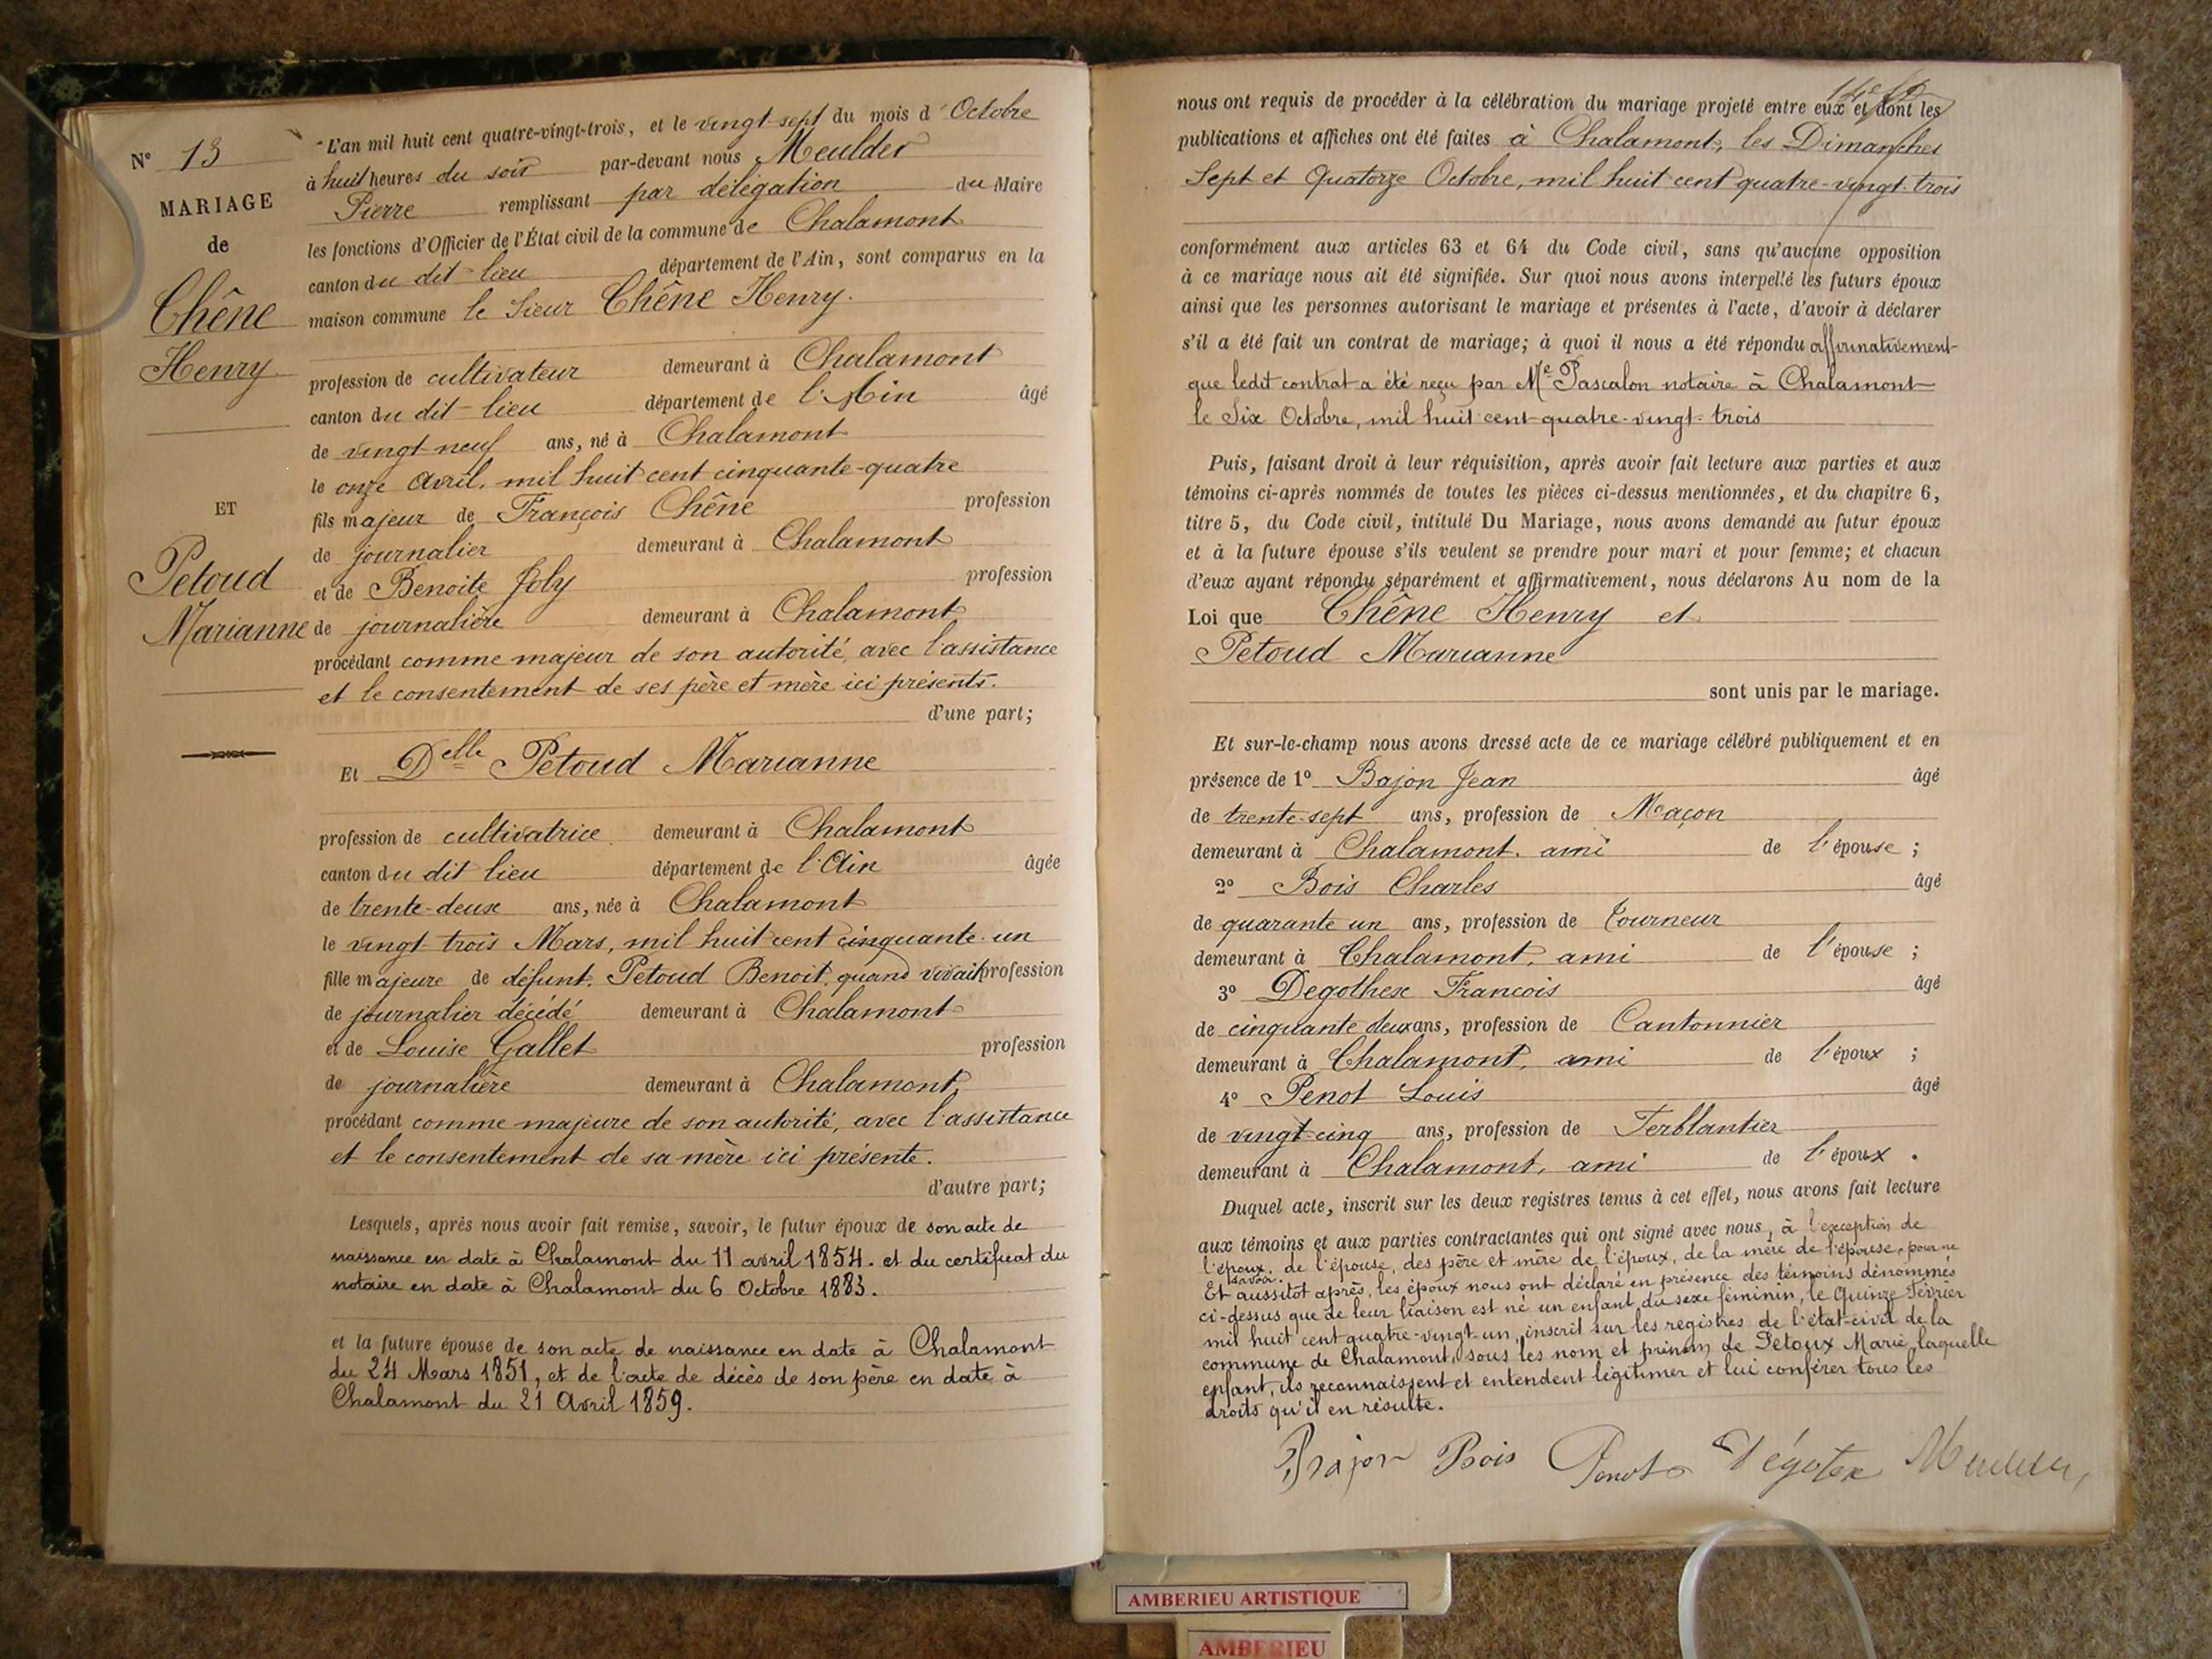 N° 13
MARIAGE
de
Chêne
Henry
ET
Petoud
Marianne
L'an mil huit cent quatre-vingt-trois, et le vingt sept du mois d'Octobre
à huit heures du soir par-devant nous Meulder
Pierre remplissant par délégation du Maire
les fonctions d'Officier de l'État civil de la commune de Chalamont
canton du dit-lieu département de l'Ain, sont comparus en la
maison commune le Sieur Chêne Henry.
profession de cultivateur demeurant à Chalamont
canton du dit-lieu département de l'Ain âgé
de vingt-neuf ans, né à Chalamont
le onze Avril, mil huit cent cinquante-quatre
fils majeur de François Chêne profession
de journalier demeurant à Chalamont
et de Benoite Joly profession
de journalière demeurant à Chalamont
procédant comme majeur de son autorité, avec l'assistance
et le consentement de ses père et mère ici présents.
d'une part;
Et Delle Petoud Marianne
profession de cultivatrice demeurant à Chalamont
canton du dit lieu département de l'Ain âgée
de trente-deux ans, née à Chalamont
le vingt-trois Mars, mil huit cent cinquante-un
fille majeure de défunt Petoud Benoit, quand vivait profession
de journalier décédé demeurant à Chalamont
et de Louise Gallet profession
de journalière demeurant à Chalamont,
procédant comme majeure de son autorité, avec l'assistance
et le consentement de sa mère ici présente.
d'autre part;
Lesquels, après nous avoir fait remise, savoir, le futur époux de son acte de
naissance en date à Chalamont du 11 avril 1854. et du certificat du
notaire en date à Chalamont du 6 Octobre 1883.
et la future épouse de son acte de naissance en date à Chalamont
du 24 Mars 1851, et de l'acte de décès de son père en date à
Chalamont du 21 Avril 1859.
nous ont requis de procéder à la célébration du mariage projeté entre eux et dont les
publications et affiches ont été faites à Chalamont, les Dimanches
Sept et Quatorze Octobre, mil huit cent quatre-vingt-trois
conformément aux articles 63 et 64 du Code civil, sans qu'aucune opposition
à ce mariage nous ait été signifiée. Sur quoi nous avons interpellé les futurs époux
ainsi que les personnes autorisant le mariage et présentes à l'acte, d'avoir à déclarer
s'il a été fait un contrat de mariage; à quoi il nous a été répondu affirmativement
que ledit contrat a été reçu par Me Pascalon notaire à Chalamont
le Six Octobre, mil huit cent-quatre-vingt-trois
Puis, faisant droit à leur réquisition, après avoir fait lecture aux parties et aux
témoins ci-après nommés de toutes les pièces ci-dessus mentionnées, et du chapitre 6,
titre 5, du Code civil, intitulé Du Mariage, nous avons demandé au futur époux
et à la future épouse s'ils veulent se prendre pour mari et pour femme; et chacun
d'eux ayant répondu séparément et affirmativement, nous déclarons Au nom de la
Loi que Chêne Henry et
Petoud Marianne
sont unis par le mariage.
Et sur-le-champ nous avons dressé acte de ce mariage célébré publiquement et en
présence de 1° Bajon Jean âgé
de trente-sept ans, profession de Maçon
demeurant à Chalamont, ami de l'épouse ;
2° Bois Charles âgé
de quarante un ans, profession de Tourneur
demeurant à Chalamont, ami de l'épouse ;
3° Degothex François âgé
de cinquante deux ans, profession de Cantonnier
demeurant à Chalamont, ami de l'époux ;
4° Penot Louis âgé
de vingt-cinq ans, profession de Ferblantier
demeurant à Chalamont, ami de l'époux.
Duquel acte, inscrit sur les deux registres tenus à cet effet, nous avons fait lecture
aux témoins et aux parties contractantes qui ont signé avec nous, à l'exception de
l'époux, de l'épouse, des père et mère de l'époux, de la mère de l'épouse, pour ne
savoir.
Et aussitôt après, les époux nous ont déclaré en présence des témoins dénommés
ci-dessus que de leur liaison est né un enfant du sexe féminin, le Quinze Février
mil huit cent quatre-vingt-un, inscrit sur les registres de l'état-civil de la
commune de Chalamont, sous les nom et prénom de Petoux Marie, laquelle
enfant, ils reconnaissent et entendent légitimer et lui conférer tous les
droits qu'il en résulte.
Bajon Bois Penot Dégotex Meulder
AMBERIEU ARTISTIQUE
AMBERIEU